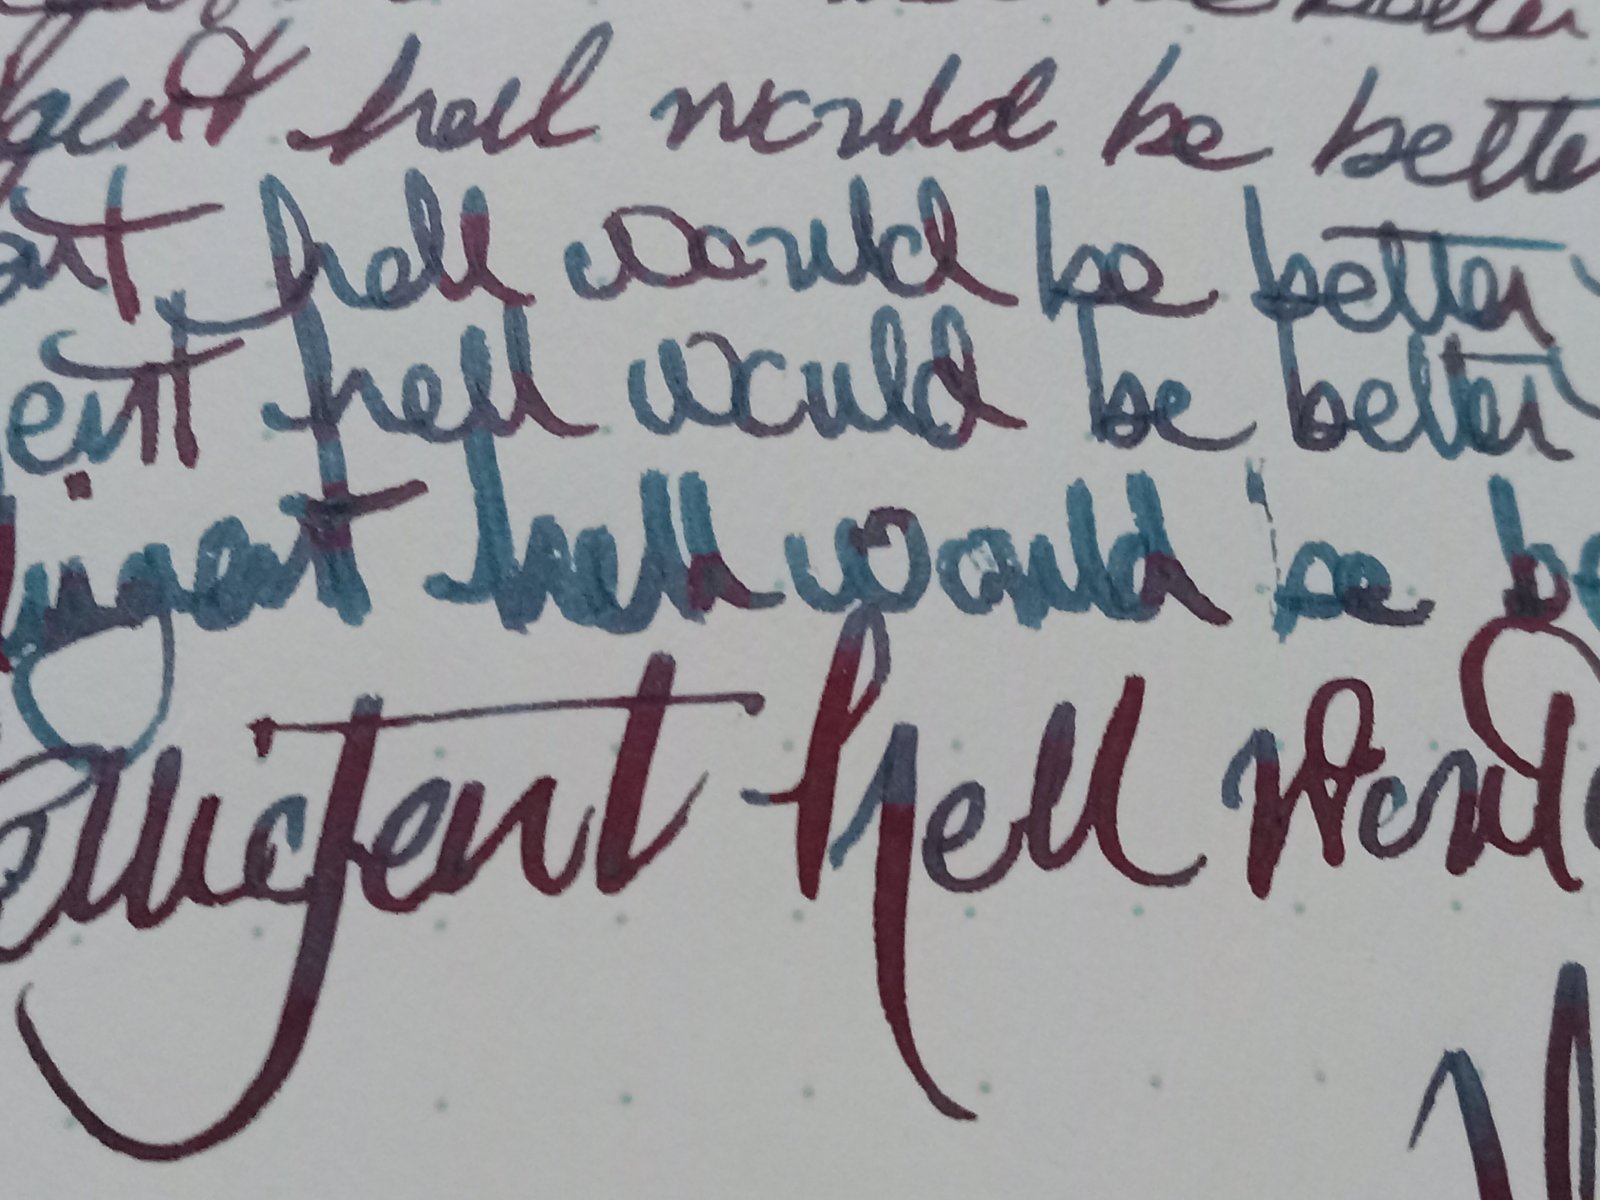 be better
ligent hell would be better
ent hell would be better
gent hell would be better
ligent hell would be be
elligent hell would